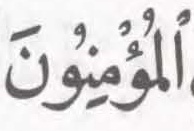 ٱلْمُؤْمِنُونَ